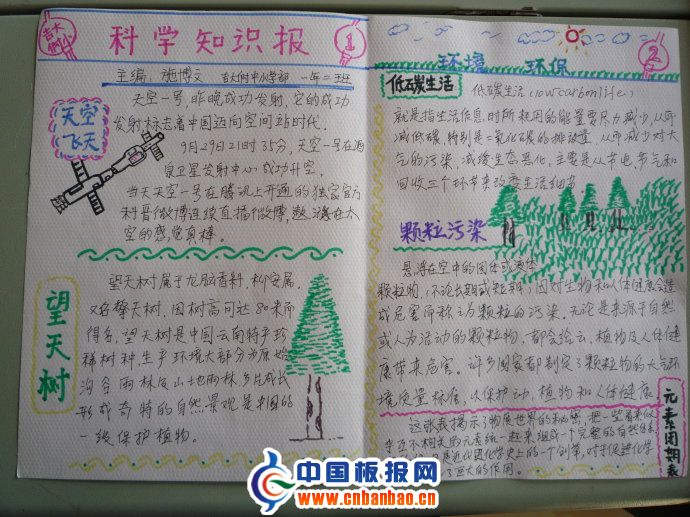 科学知识报
1
主编：施博文 吉大附中小学部 一年二班
天空飞天
天空一号，昨晚成功发射，它的成功
发射标志着中国迈向空间站时代。
9月29日21时35分，天空一号在酒
泉卫星发射中心成功升空。
当天天空一号在腾讯上开通的独家官方
科普微博连续直播微博，遨游在太
空的感觉真棒。
望天树
望天树属于龙脑香科，柳安属。
又名擎天树，因树高可达80米而
得名。望天树是中国云南特产珍
稀树种，生产环境大部分为原始
沟谷雨林及山地雨林，多片成长
形成奇特的自然景观，是中国的
一级保护植物。
2
环境 环保
低碳生活
低碳生活（lowcarbonlife）
就是指生活作息时所耗用的能量要尽力减少，从而
减低碳，特别是二氧化碳的排放量，从而减少对大
气的污染，减缓生态恶化，主要是从节电节气和
回收三个环节来改变生活细节。
颗粒污染
悬浮在空中的固体或液体
颗粒物，不论长期或短期，因对生物和人体健康会造
成危害而称之为颗粒的污染。无论是来源于自然
或人为活动的颗粒物，都会给动、植物及人体健
康带来危害。许多国家都制定了颗粒物的大气环
境质量标准，以保护动、植物和人体健康。
元素周期表
这张表揭示了物质世界的秘密，把一些看来似
乎互不相关的元素统一起来，组成一个完整的自然体系。
是近代化学史上的一个创举，对于促进化学
了巨大的作用。
中国板报网
www.cnbanbao.cn